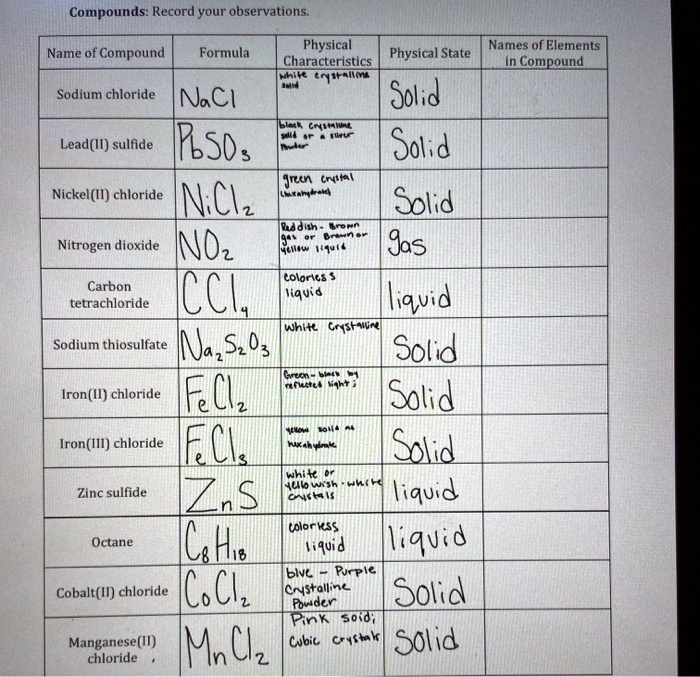 Compounds: Record your observations.
Name of Compound
Formula
Physical
Characteristics
Physical State
Names of Elements
in Compound
Sodium chloride
NaCl
white crystalline
solid
Solid
Lead(II) sulfide
PbSO₃
black crystalline
solid or a silver
Powder
Solid
Nickel(II) chloride
NiCl₂
green crystal
(hexahydrate)
Solid
Nitrogen dioxide
NO₂
Reddish-Brown
gas or Brown or
yellow liquid
gas
Carbon
tetrachloride
CCl₄
colorless
liquid
liquid
Sodium thiosulfate
Na₂S₂O₃
White Crystalline
Solid
Iron(II) chloride
FeCl₂
Green-black by
reflected light;
Solid
Iron(III) chloride
FeCl₃
yellow solid as
hexahydrate
Solid
Zinc sulfide
ZnS
white or
yellowish-white
crystals
liquid
Octane
C₈H₁₈
colorless
liquid
liquid
Cobalt(II) chloride
CoCl₂
blue - Purple
Crystalline
Powder
Solid
Manganese(II)
chloride
MnCl₂
Pink soid;
Cubic crystals
Solid